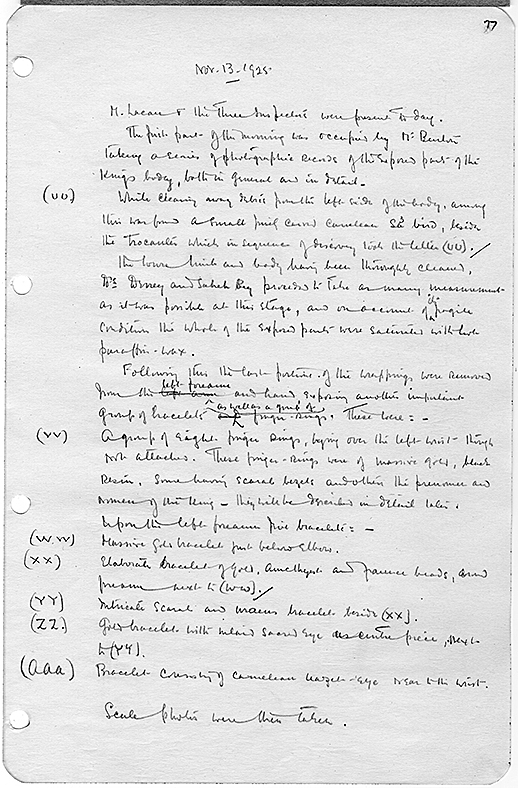 77
Nov. 13. 1925.
M. Lacau & the Three Inspectors were present to day.
The first part of the morning was occupied by Mr Burton
taking a series of photographic records of the exposed parts of the
King's body, both in general and in detail.
(UU) While clearing away debris from the left side of the body, among
this was found a small finely carved carnelian Sȝ bird, beside
the Trocanter which in sequence of discovery took the letter (UU).
The lower limbs and body having been thoroughly cleaned,
Drs Derry and Saleh Bey proceeded to take as many measurements
as it was possible at this stage, and on account of its fragile
condition the whole of the exposed parts were saturated with hot
paraffin-wax.
Following this the last portions of the wrappings were removed
from the left forearm and hand exposing another important
group of bracelets as well as a group of finger-rings. These were: -
(VV) A group of eight finger rings, lying over the left wrist though
not attached. These finger-rings were of massive gold, black
resin, some having scarab bezels and others the prenomen and
nomen of the King - they will be described in detail later.
Upon the left forearm five bracelets: -
(W.W) Massive Gold bracelet just below Elbow.
(XX) Elaborate bracelet of Gold, Amethyst and faience beads, around
forearm next to (WW).
(YY) Intricate Scarab and uraeus bracelet beside (XX).
(ZZ.) Gold bracelet with inlaid Sacred Eye as centre piece, next
to (YY).
(aaa) Bracelet consisting of carnelian uazat-eye near to the wrist.
Scale photos were then taken.